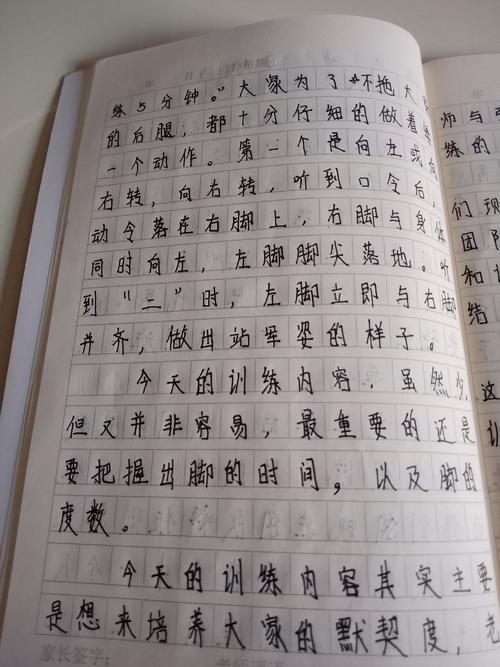 年 月 日 星期
练5分钟。”大家为了不拖大家
的后腿，都十分仔细的做着每
一个动作。第一个是向左或向
右转，向右转，听到口令后，
动令落在右脚上，右脚与身体
同时向左，左脚脚尖落地。听
到“二”时，左脚立即与右脚
并齐，做出站军姿的样子。
今天的训练内容，虽然少，
但又并非容易，最重要的还是
要把握出脚的时间，以及脚的
度数。
今天的训练内容其实主要
是想来培养大家的默契度，老
家长签字：
年
师与
练的
们现
团队
和
结
这
训